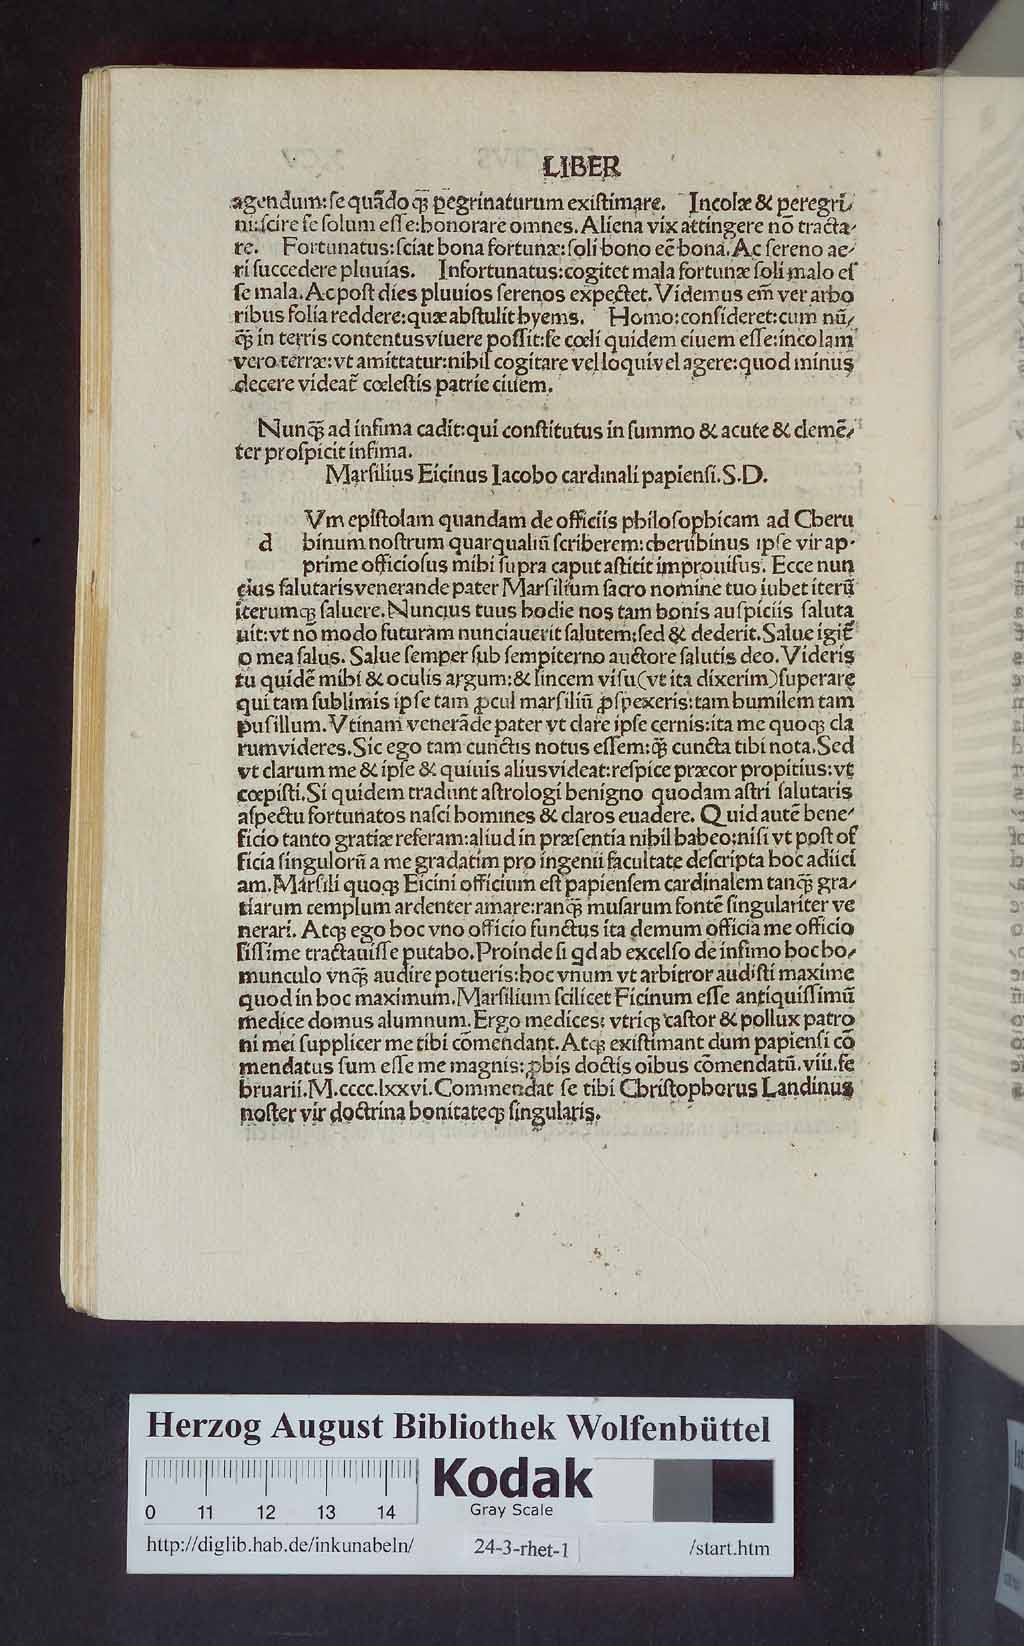 LIBER
agendum: se quādo q̄ꝫ ꝑegrinaturum existimare. Incolæ & peregri/
ni: scire se solum esse: honorare omnes. Aliena vix attingere nō tracta/
re. Fortunatus: sciat bona fortunæ: soli bono eē bona. Ac sereno ae/
ri succedere pluuias. Infortunatus: cogitet mala fortunæ soli malo es
se mala. Ac post dies pluuios serenos expectet. Videmus em̄ ver arbo
ribus folia reddere: quæ abstulit hyems. Homo: consideret: cum nū/
q̄ꝫ in terris contentus viuere possit: se cœli quidem ciuem esse: incolam
vero terræ: vt amittatur: nihil cogitare vel loqui vel agere: quod minus
decere videat̄ cœlestis patrie ciuem.
Nunq̄ꝫ ad infima cadit: qui constitutus in summo & acute & clemē/
ter prospicit infima.
Marsilius Eicinus Iacobo cardinali papiensi. S. D.
Vm epistolam quandam de officiis philosophicam ad Cheru
d binum nostrum quarqualiū scriberem: cherubinus ipse vir ap-
prime officiosus mihi supra caput astitit improuisus. Ecce nun
cius salutaris venerande pater Marsilium sacro nomine tuo iubet iterū
iterumqꝫ saluere. Nuncius tuus hodie nos tam bonis auspiciis saluta
uit: vt nō modo futuram nunciauerit salutem: sed & dederit. Salue igit̄
o mea salus. Salue semper sub sempiterno auctore salutis deo. Videris
tu quidē mihi & oculis argum: & lincem visu (vt ita dixerim) superare
qui tam sublimis ipse tam ꝓcul marsiliū ꝓspexeris: tam humilem tam
pusillum. Vtinam venerāde pater vt clare ipse cernis: ita me quoqꝫ cla
rum videres. Sic ego tam cunctis notus essem: q̄ꝫ cuncta tibi nota. Sed
vt clarum me & ipse & quiuis alius videat: respice præcor propitius: vt
cœpisti. Si quidem tradunt astrologi benigno quodam astri salutaris
aspectu fortunatos nasci homines & claros euadere. Quid autē bene/
ficio tanto gratiæ referam: aliud in præsentia nihil habeo: nisi vt post of
ficia singulorū a me gradatim pro ingenii facultate descripta hoc adiici
am. Marsili quoqꝫ Eicini officium est papiensem cardinalem tanq̄ꝫ gra/
tiarum templum ardenter amare: ranq̄ꝫ musarum fontē singulariter ve
nerari. Atqꝫ ego hoc vno officio functus ita demum officia me officio
sissime tractauisse putabo. Proinde si qd ab excelso de infimo hoc ho/
munculo vnq̄ꝫ audire potueris: hoc vnum vt arbitror audisti maxime
quod in hoc maximum. Marsilium scilicet Ficinum esse antiquissimū
medice domus alumnum. Ergo medices: vtriqꝫ castor & pollux patro
ni mei supplicer me tibi cōmendant. Atqꝫ existimant dum papiensi cō
mendatus sum esse me magnis: ꝓbis doctis oībus cōmendatū. viii. fe
bruarii. M.cccc.lxxvi. Commendat se tibi Christophorus Landinus
noster vir doctrina bonitateqꝫ singularis.
Herzog August Bibliothek Wolfenbüttel
0 11 12 13 14
Kodak
Gray Scale
http://diglib.hab.de/inkunabeln/ 24-3-rhet-1 /start.htm